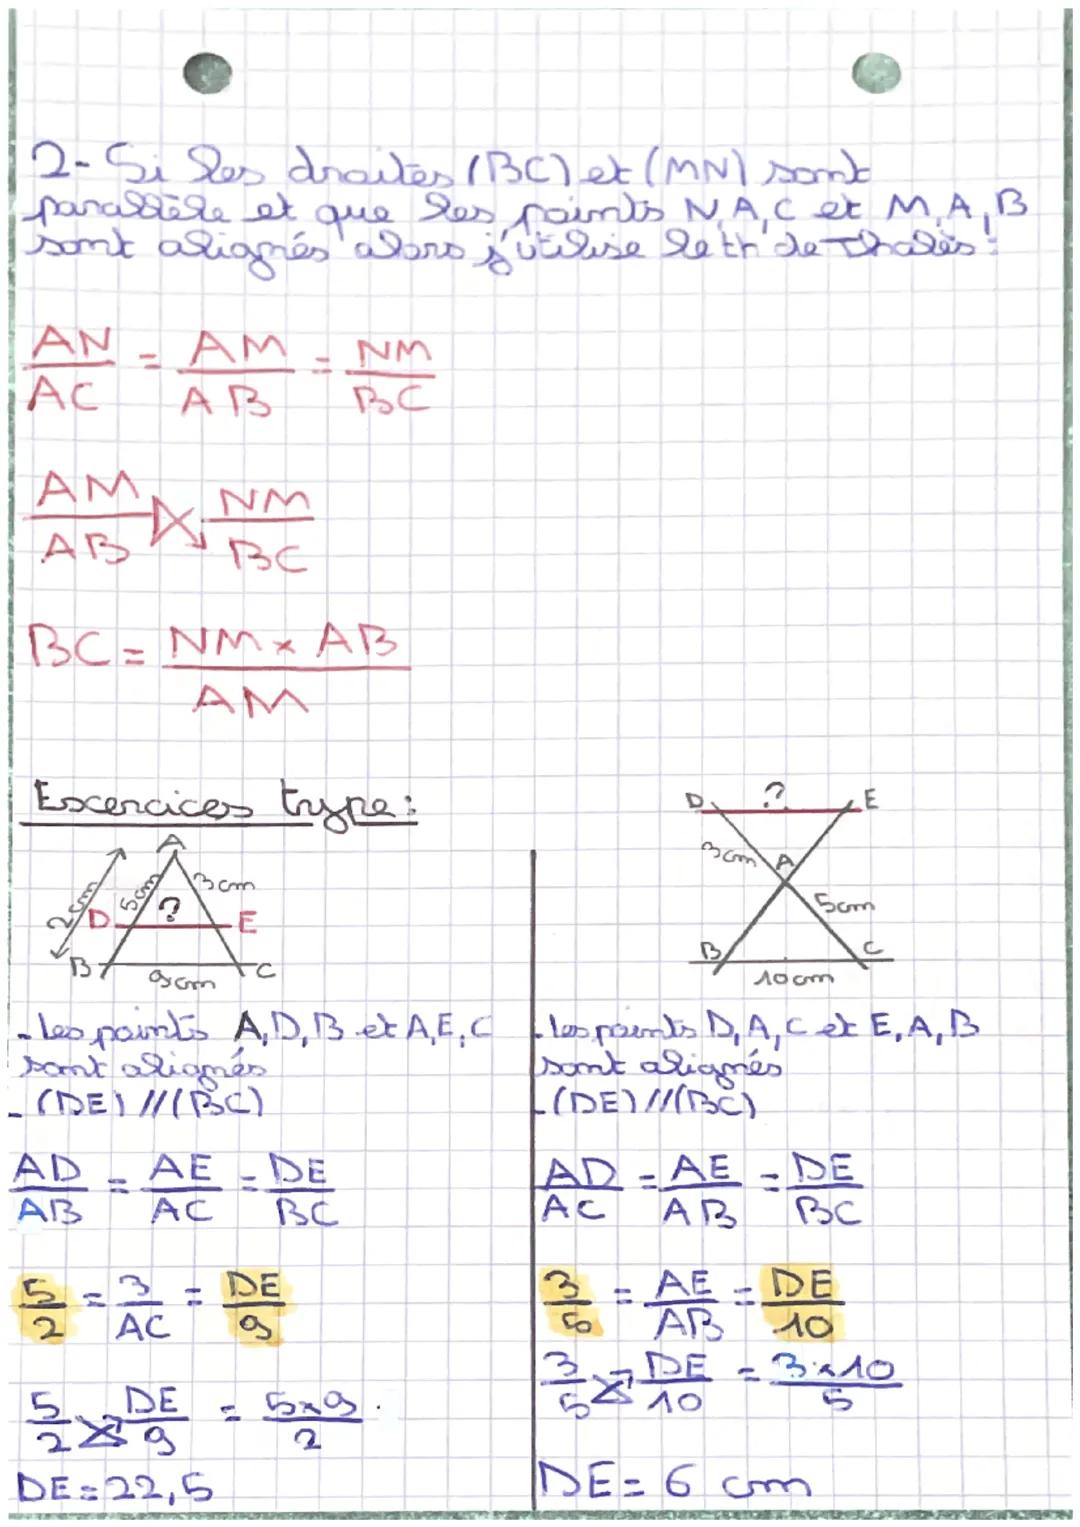 2- Si les droites (BC) et (MN) sont
parallèle et que les points N,A,C et M,A,B
sont alignés alors j'utilise le th de Thalès :
AN/AC = AM/AB = NM/BC
AM/AB NM/BC
BC = NM × AB / AM
Excercices type :
A
2cm
5cm
3cm
D
?
E
B
9cm
C
- les points A,D,B et A,E,C
sont alignés
- (DE) // (BC)
AD/AB = AE/AC = DE/BC
5/2 = 3/AC = DE/9
5/2 DE/9 = 5×9/2
DE = 22,5
D
?
E
3cm
A
5cm
B
C
10cm
- les points D,A,C et E,A,B
sont alignés
- (DE) // (BC)
AD/AC = AE/AB = DE/BC
3/5 = AE/AB = DE/10
3/5 DE/10 = 3×10/5
DE = 6 cm